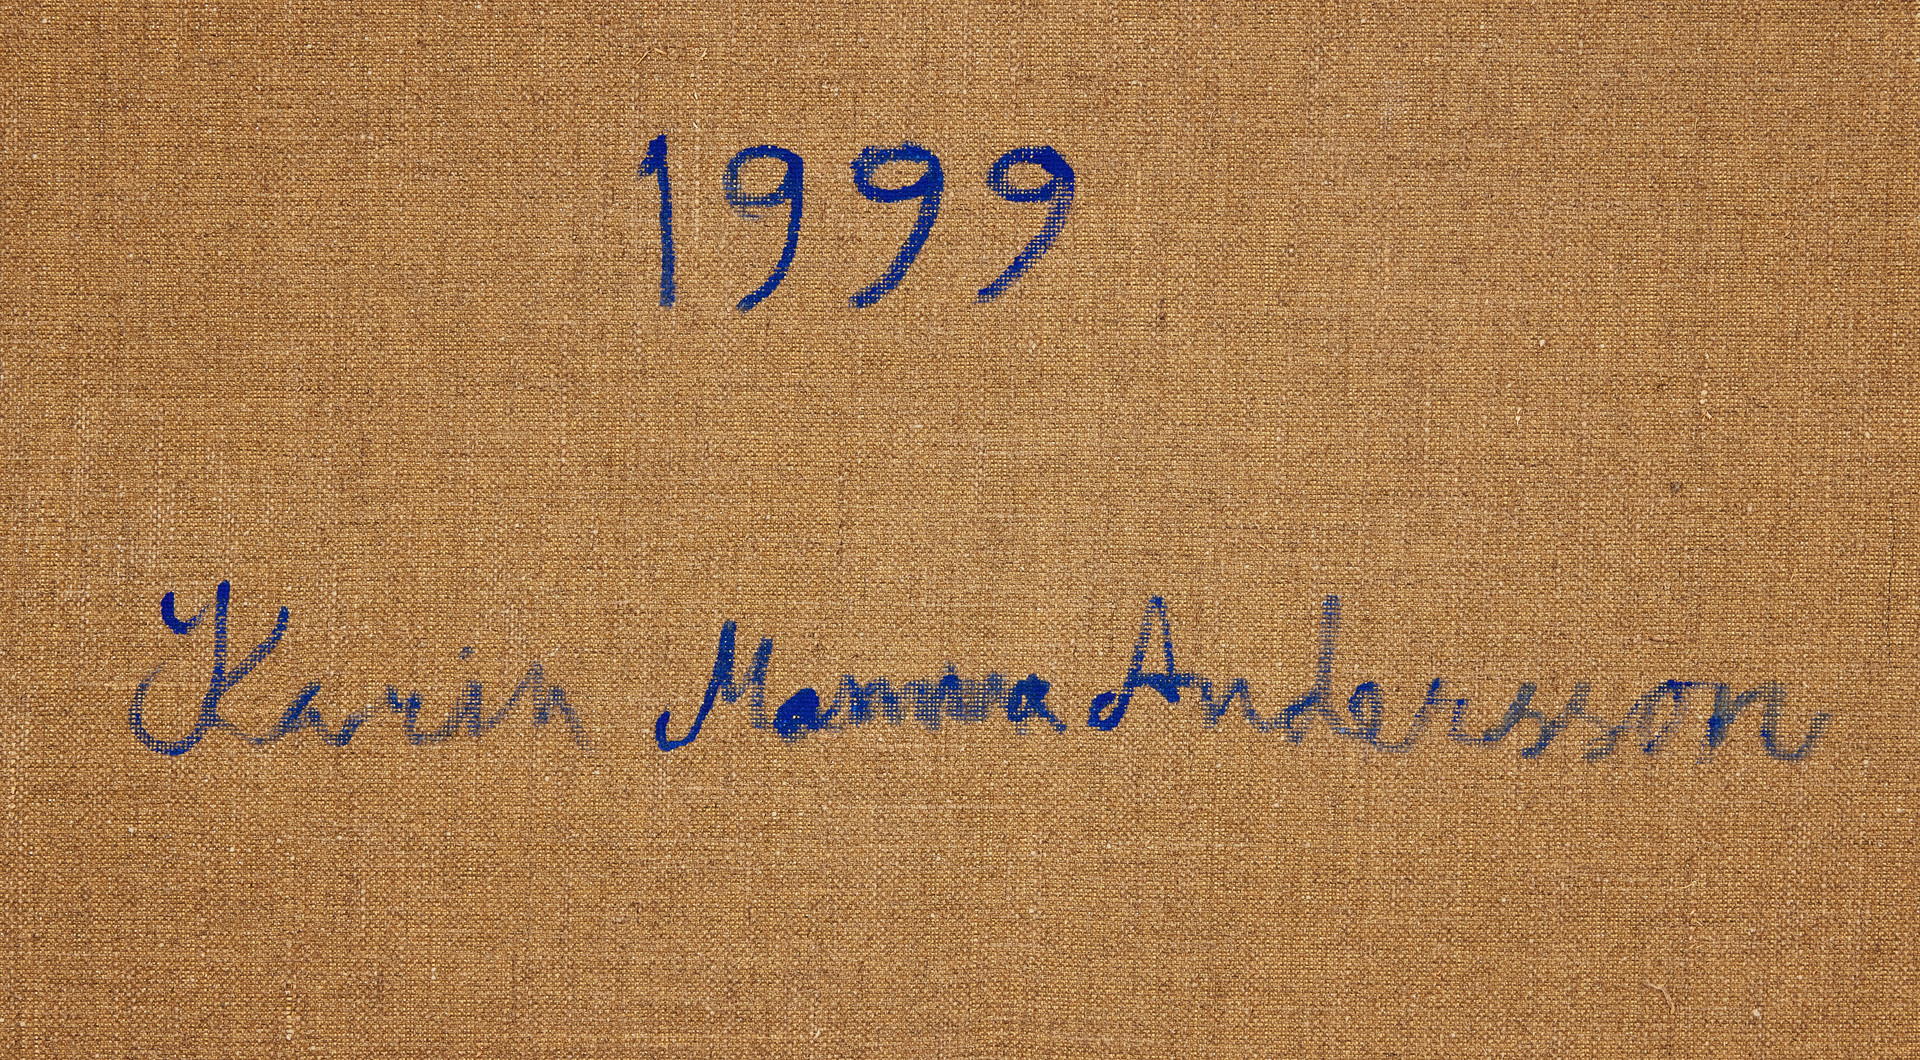 1999
Karin Mamma Andersson